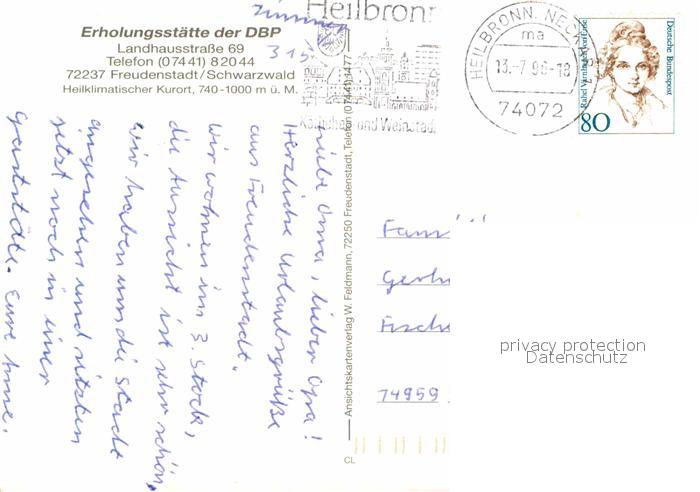 Erholungsstätte der DBP
Landhausstraße 69
Telefon (07441) 82044
72237 Freudenstadt/Schwarzwald
Heilklimatischer Kurort, 740-1000 m ü. M.
Zimmer
315
Heilbronn
Käthchen- und Weinstadt
HEILBRONN, NECKAR
ma
13.-7.98-18
74072
Deutsche Bundespost
Rahel Varnhagen von Ense
80
Liebe Oma, lieber Opa!
Herzliche Urlaubsgrüße
aus Freudenstadt.
Wir wohnen im 3. Stock,
die Aussicht ist sehr schön.
Wir haben uns die Stadt
angesehen und sitzen
jetzt noch in einer
Gaststätte. Eure Anne.
Ansichtskartenverlag W. Feldmann, 72250 Freudenstadt, Telefon (07441) 1477
CL
Fam
Gerh
Fische
74959
privacy protection
Datenschutz